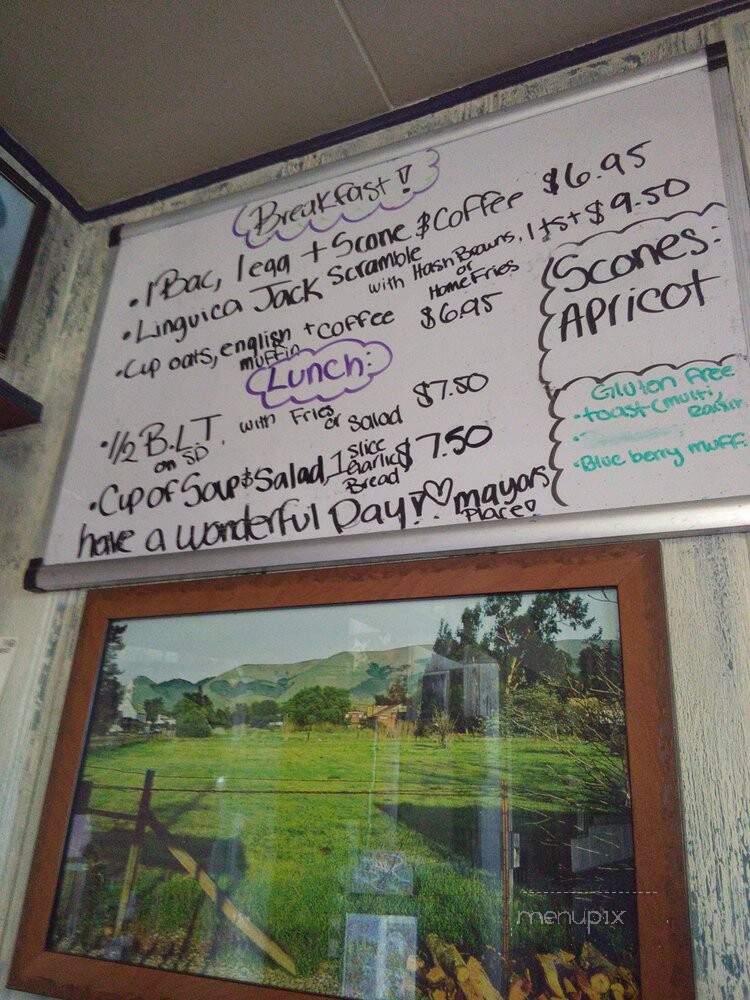 Breakfast!
• 1 Bac, 1 egg + Scone & Coffee $6.95
• Linguica Jack Scramble $9.50
with Hash Browns, 1 tst
or
Home Fries
• Cup oats, english + coffee $6.95
muffin
Lunch:
• 1/2 B.L.T. with Fries $7.50
on SD or Salad
• Cup of Soup & Salad, 1 Slice $7.50
Garlic
Bread
have a wonderful Day! mayors
Place!
Scones:
Apricot
Gluten Free
• toast (multi,
raisin
•
• Blue berry muff.
menupix